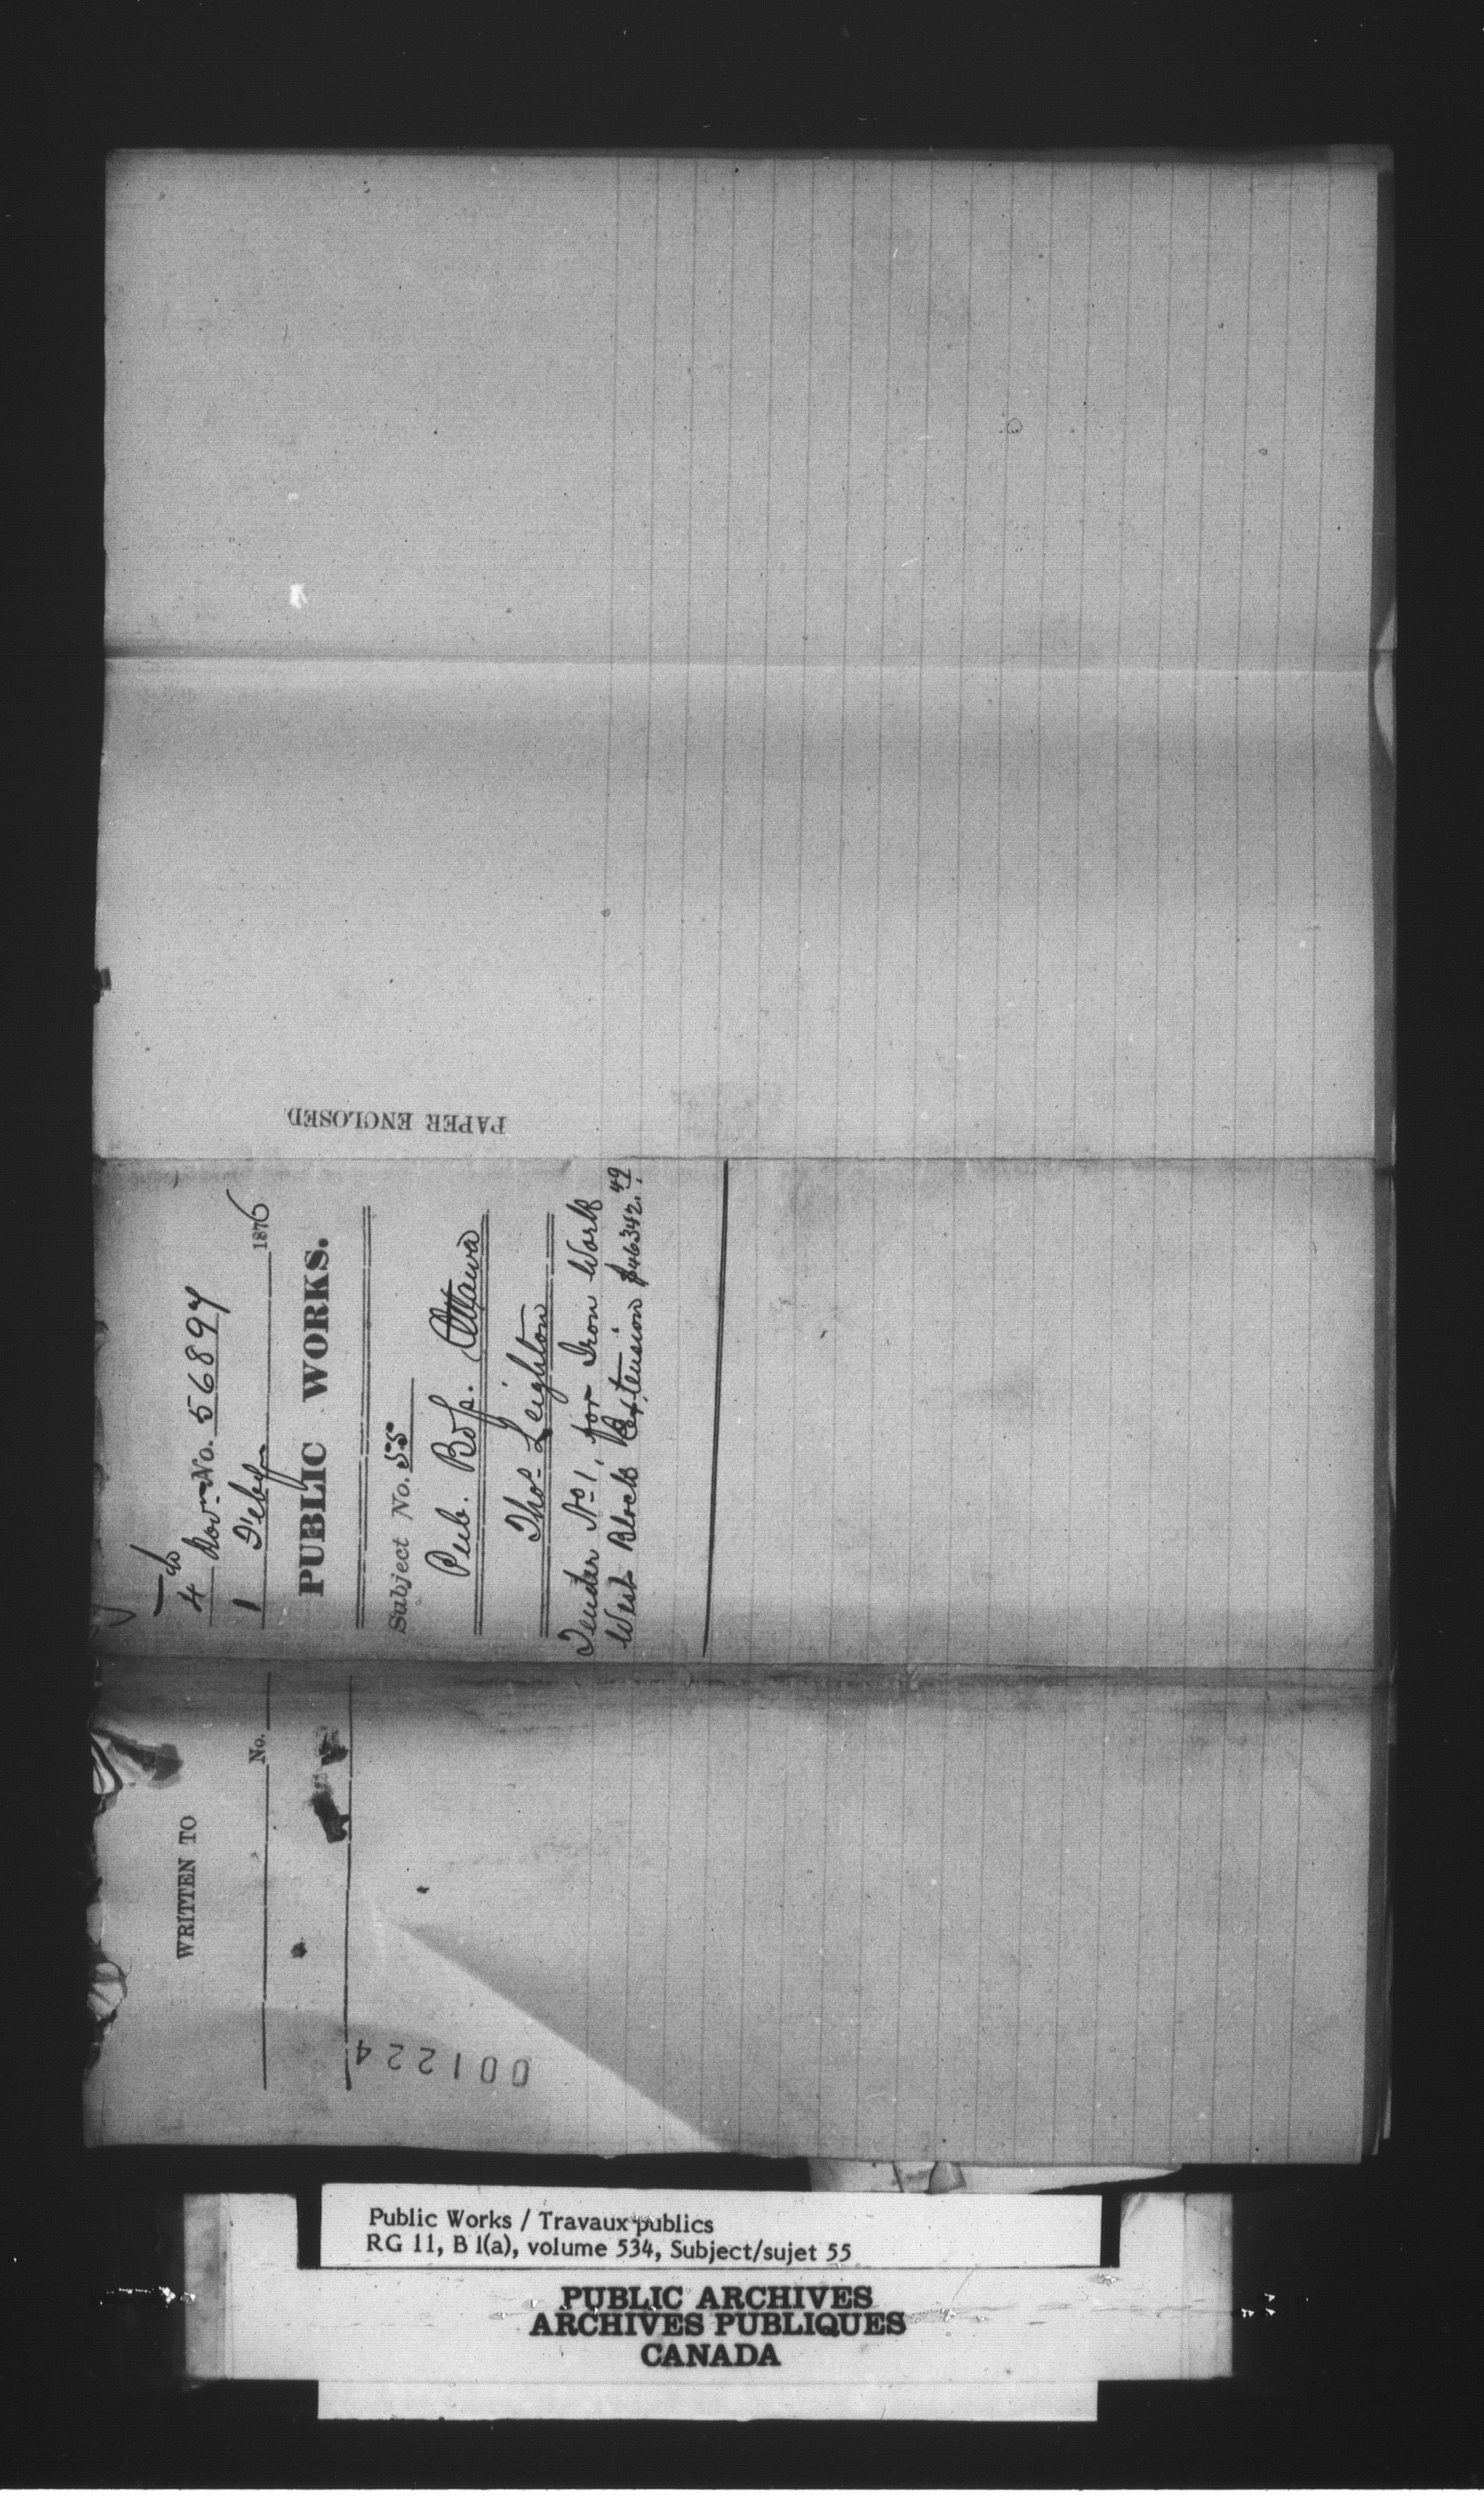 4 Nov. No. 56897
1 Feby 1876
PUBLIC WORKS.
Subject No. 55
Pub. Bdgs. Ottawa
Thos. Leighton
Tender No 1, for Iron Work
West Block Extension $46342.49
PAPER ENCLOSED
WRITTEN TO
No.
001224
Public Works / Travaux publics
RG 11, B 1(a), volume 534, Subject/sujet 55
PUBLIC ARCHIVES
ARCHIVES PUBLIQUES
CANADA